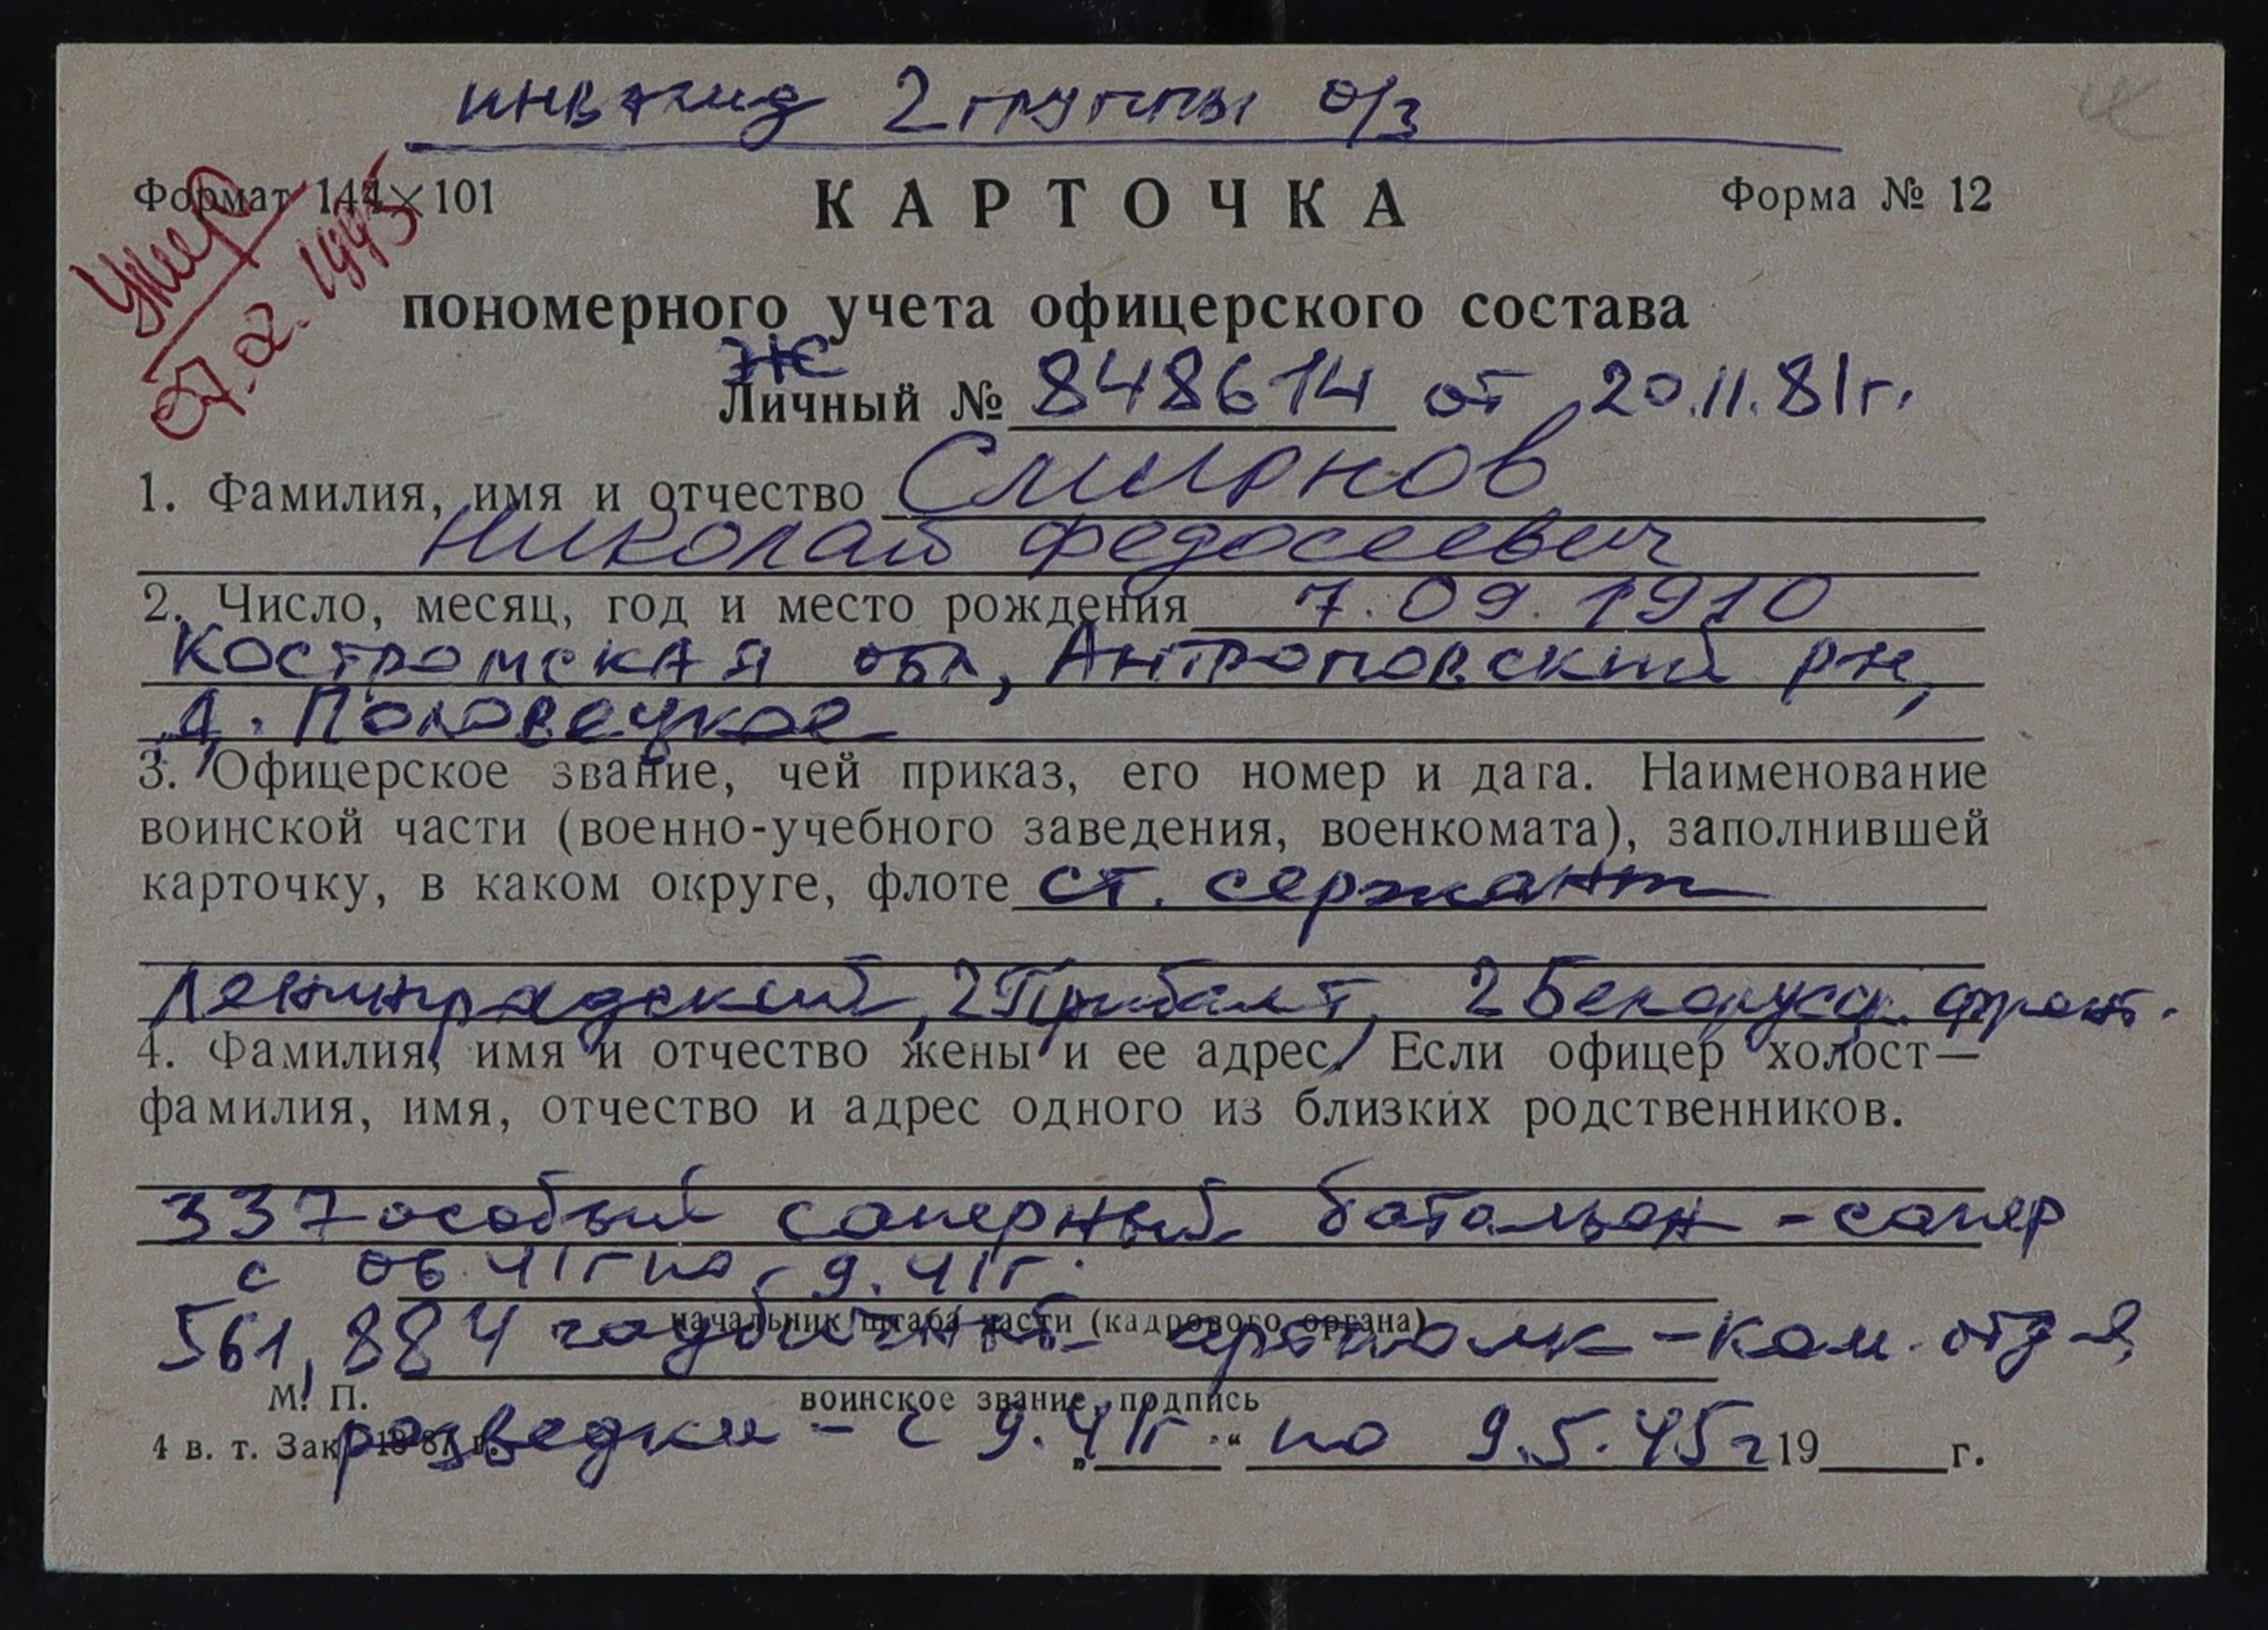 инвалид 2 группы о/з
Формат 144×101
КАРТОЧКА
Форма № 12
Умер
07.02.1995
пономерного учета офицерского состава
ЖС
Личный № 848614 от 20.11.81г.
1. Фамилия, имя и отчество Смирнов
Николай Федосеевич
2. Число, месяц, год и место рождения 7.09.1910
Костромская обл, Антроповский рн,
д. Половецкое
3. Офицерское звание, чей приказ, его номер и дата. Наименование
воинской части (военно-учебного заведения, военкомата), заполнившей
карточку, в каком округе, флоте ст. сержант
Ленинградский, 2 Прибалт, 2 Белорусс. фронт.
4. Фамилия, имя и отчество жены и ее адрес. Если офицер холост—
фамилия, имя, отчество и адрес одного из близких родственников.
337 особый саперный батальон - сапер
с 06.41г по 9.41г.
начальник штаба части (кадрового органа)
561, 884 гаубичный артполк - ком. отд-я,
М. П.
воинское звание, подпись
разведки - с 9.41г. по 9.5.45г
4 в. т. Зак.
„ “ 19 г.